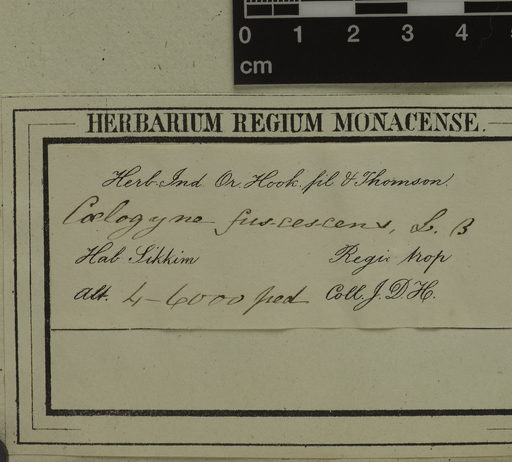 0 1 2 3 4 5
cm
HERBARIUM REGIUM MONACENSE.
Herb. Ind. Or. Hook. fil. & Thomson.
Cœlogyne fuscescens, L. β
Hab. Sikkim Regio trop.
Alt. 4-6000 ped Coll. J. D. H.